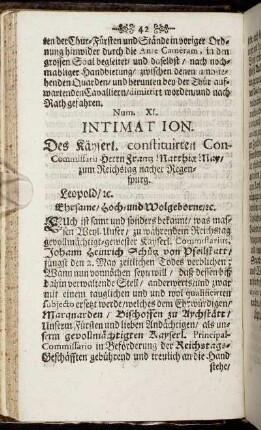 42
ten der Chur-Fürsten und Stände in voriger Ord-
nung hinwider durch die Ante Cameram, in den
grossen Saal begleitet/ und daselbst / nach noch-
mahliger Handbietung/ zwischen denen anwte-
henden Quarden/ und herunten bey der Thür auf-
wartenden Cavalliern/ dimittirt worden/und nach
Rath gefahren.
Num. XI.
INTIMATION.
Des Käyserl. constituirten Con-
Commissarii Herrn Frantz Matthiæ May/
zum Reichstag nacher Regen-
spurg.
Leopold/ &c.
Ehrsame/ Hoch- und Wolgeborne/&c.
EUch ist samt und sonders bekannt/ was mas-
sen Weyl. Unser/ zu währendem Reichstag
gevollmächtigt-gewester Kayserl. Commissarius,
Johann Heinrich Schütz von Pfeilstatt/
jüngst den 2. May zeitlichen Todes verblichen;
Wann nun vonnöthen seyn will / daß dessen biß
dahin verwaltende Stell/ anderwerts/und zwar
mit einem tauglichen und und wol qualificirten
Subjecto ersetzt werde/welches dem Ehrwürdigen/
Marquarden / Bischoffen zu Aychstätt/
Unserm Fürsten und lieben Andächtigen/ als un-
serm gevollmächtigten Kayserl. Principal-
Commissario in Beförderung der Reichstags-
Geschäfften gebührend und treulich an die Hand
stehe/